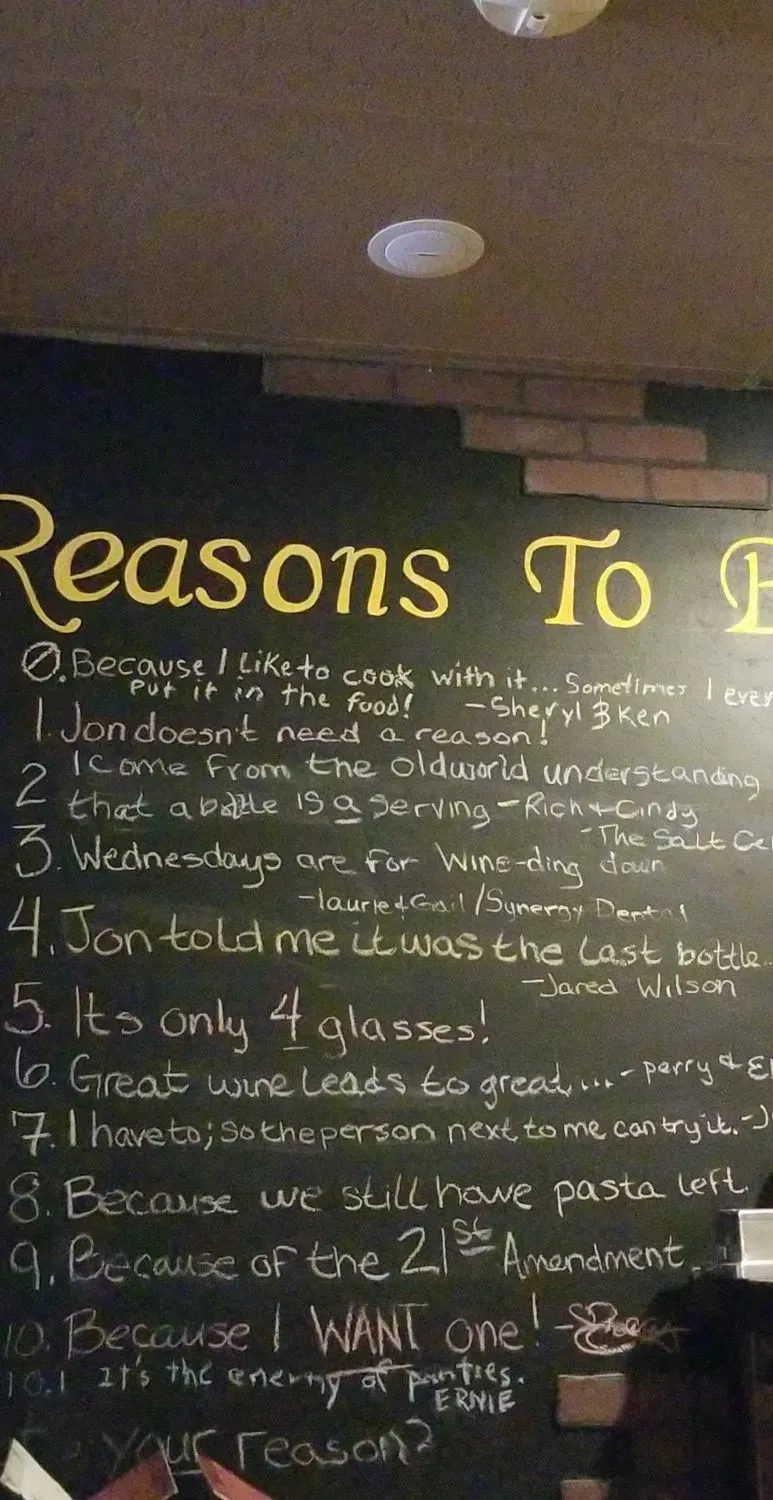 Reasons To B
0. Because I Like to cook with it... Sometimes I ever
Put it in the food! -Sheryl & Ken
1. Jon doesn't need a reason!
2 I come from the old world understanding
that a bottle is a serving - Rich + Cindy
-The Salt Ce
3. Wednesdays are for Wine-ding down
-laurie + Gail / Synergy Dental
4. Jon told me it was the last bottle...
-Jared Wilson
5. Its only 4 glasses!
6. Great wine leads to great... - perry + El
7. I have to; so the person next to me can try it. -J
8. Because we still have pasta left.
9. Because of the 21st Amendment.
10. Because I WANT one! -
10.1 It's the enemy of panties.
ERNIE
your reason?